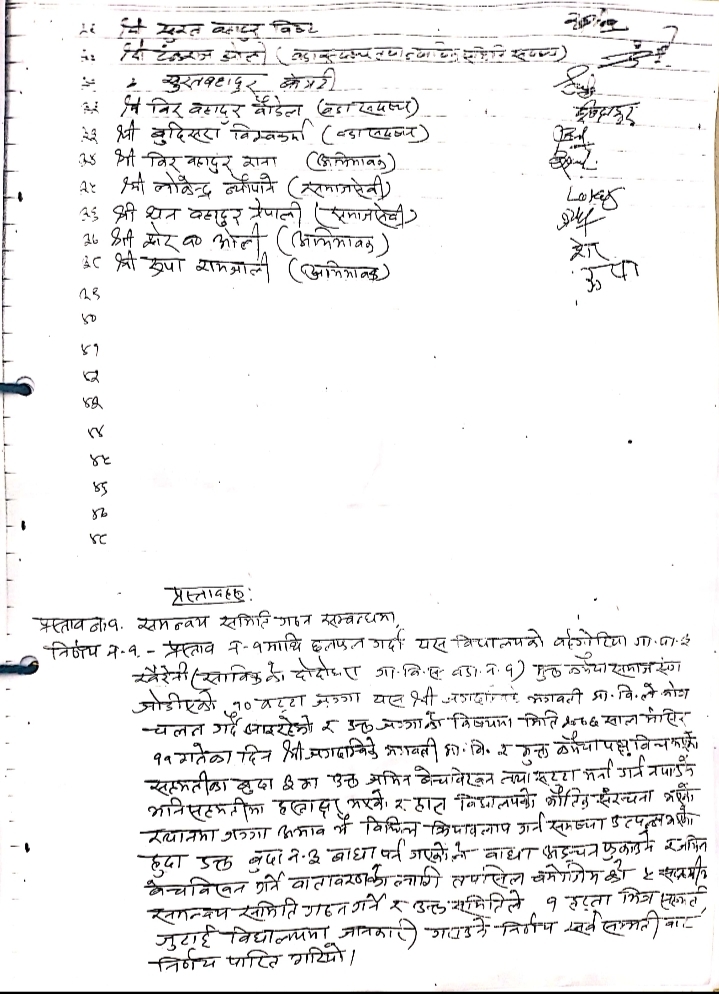 श्री सुरत बहादुर विष्ट
श्री टेकराज ओली (वडा सदस्य तथा
सुरतबहादुर केसी
३२ श्री विर बहादुर पौडेल (वडा सदस्य)
३३ श्री बुदिसरा विश्वकर्मा (वडा सदस्य)
३४ श्री विर बहादुर राना (अभिभावक)
३५ श्री लोकेन्द्र न्यौपाने (समाजसेवी)
३६ श्री धन बहादुर नेपाली (समाजसेवी)
३७ श्री शेर ब० ओली (अभिभावक) शेर
३८ श्री रूपा रामजाली (अभिभावक) रूपा
३९
४०
४१
४२
४३
४४
४५
४६
४७
४८
प्रस्तावहरु:
प्रस्ताव नं १. समन्वय समिति गठन सम्बन्धमा,
निर्णय नं-१. – प्रस्ताव नं-१ माथि छलफल गर्दा यस विद्यालयको गा.पा.२
स्वैरेनी (साविकको गा.वि.स वडा नं.९) मुक्त कमैया समाजसंग
जोडीएको १० कट्टा जग्गा यस श्री भगवती मा.वि.ले भोग
चलन गर्दै आइरहेको र उक्त जग्गाको विषयमा मिति साल मंसिर
११ गतेका दिन श्री भगवती मा.वि. र मुक्त कमैया पक्ष विच भएको
सहमतीका बुदा ३ मा उक्त जमिन बेचविखन तथा सट्टा भर्ना गर्न नपाउने
भनि सहमतीमा हस्ताक्षर भएको र हाल विद्यालयको भौतिक संरचना भएको
स्थानमा जग्गा अभाव भै विभिन्न क्रियाकलाप गर्न समस्या उत्पन्न भएको
हुदा उक्त बुदा नं-३ बाधा पर्न गएकोले बाधा अड्चन फुकाउने र जमिन
बेचविखन गर्ने वातावरणको लागि तपसिल बमोजिमको ५ सदस्यीय
समन्वय समिति गठन गर्ने र उक्त समितिले १ हप्ता भित्र सहमति
जुटाई विद्यालयमा जानकारी गराउने निर्णय सर्व सम्मती बाट
निर्णय पारित गरियो।